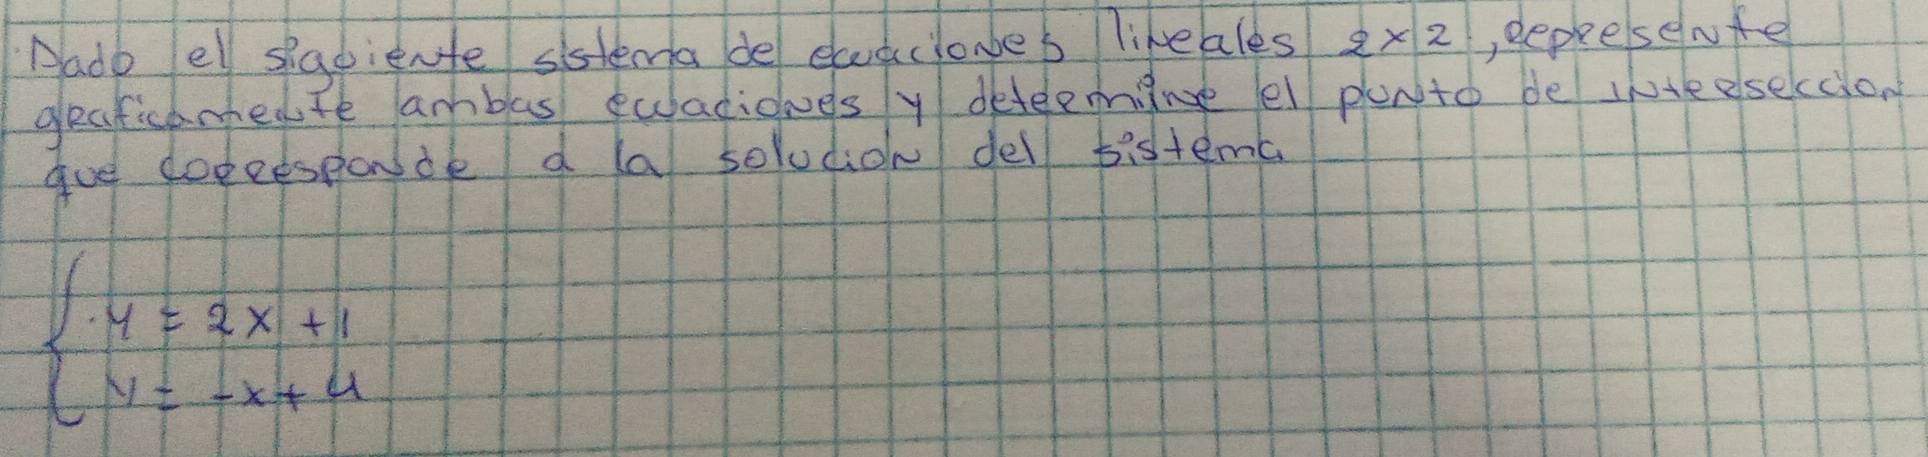 Dado el siguiente sistema de ecuaciones lineales 2x2, represente
graficamente ambas ecuaciones y determine el punto de interseccion
que corresponde a la solucion del sistema
y = 2x + 1
y = -x + 4